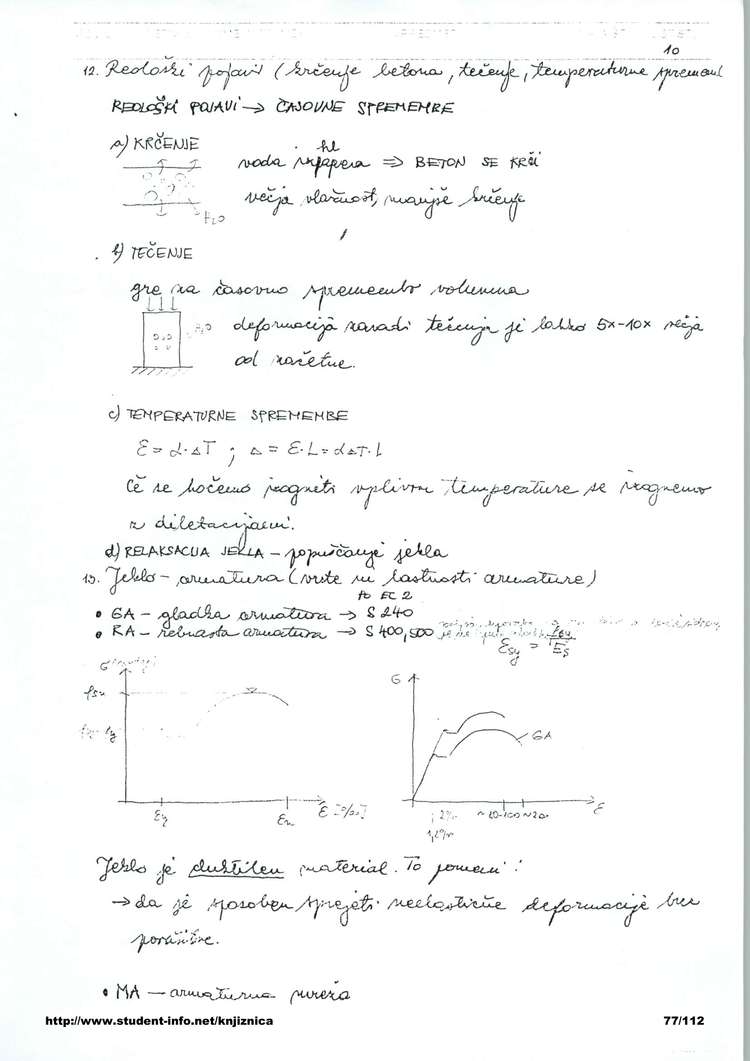 10
12. Reološki pojavi (krčenje betona, tečenje, temperaturne sprememb
REOLOŠKI POJAVI → ČASOVNE SPREMEMBE
a) KRČENJE
hl
voda izhlapeva ⇒ BETON SE KRČI
večja vlažnost, manjše krčenje
H2O
b) TEČENJE
gre za časovno spremembo volumna
deformacija zaradi tečenja je lahko 5x-10x večja
od začetne.
c) TEMPERATURNE SPREMEMBE
ε = α·ΔT ; Δ = ε·L = αΔT·L
Če se hočemo izogniti vplivom temperature se izognemo
z diletacijami.
d) RELAKSACIJA JEKLA – popuščanje jekla
13. Jeklo – armatura (vrste in lastnosti armature)
po EC 2
• GA – gladka armatura → S 240
• RA – rebrasta armatura → S 400, 500
εsy = fsy/Es
σ
fsu
εy
εu
ε [‰]
σ
GA
ε
Jeklo je duktilen material. To pomeni:
→ da je sposoben sprejeti neelastične deformacije brez
porušitve.
• MA – armaturna mreža
http://www.student-info.net/knjiznica
77/112